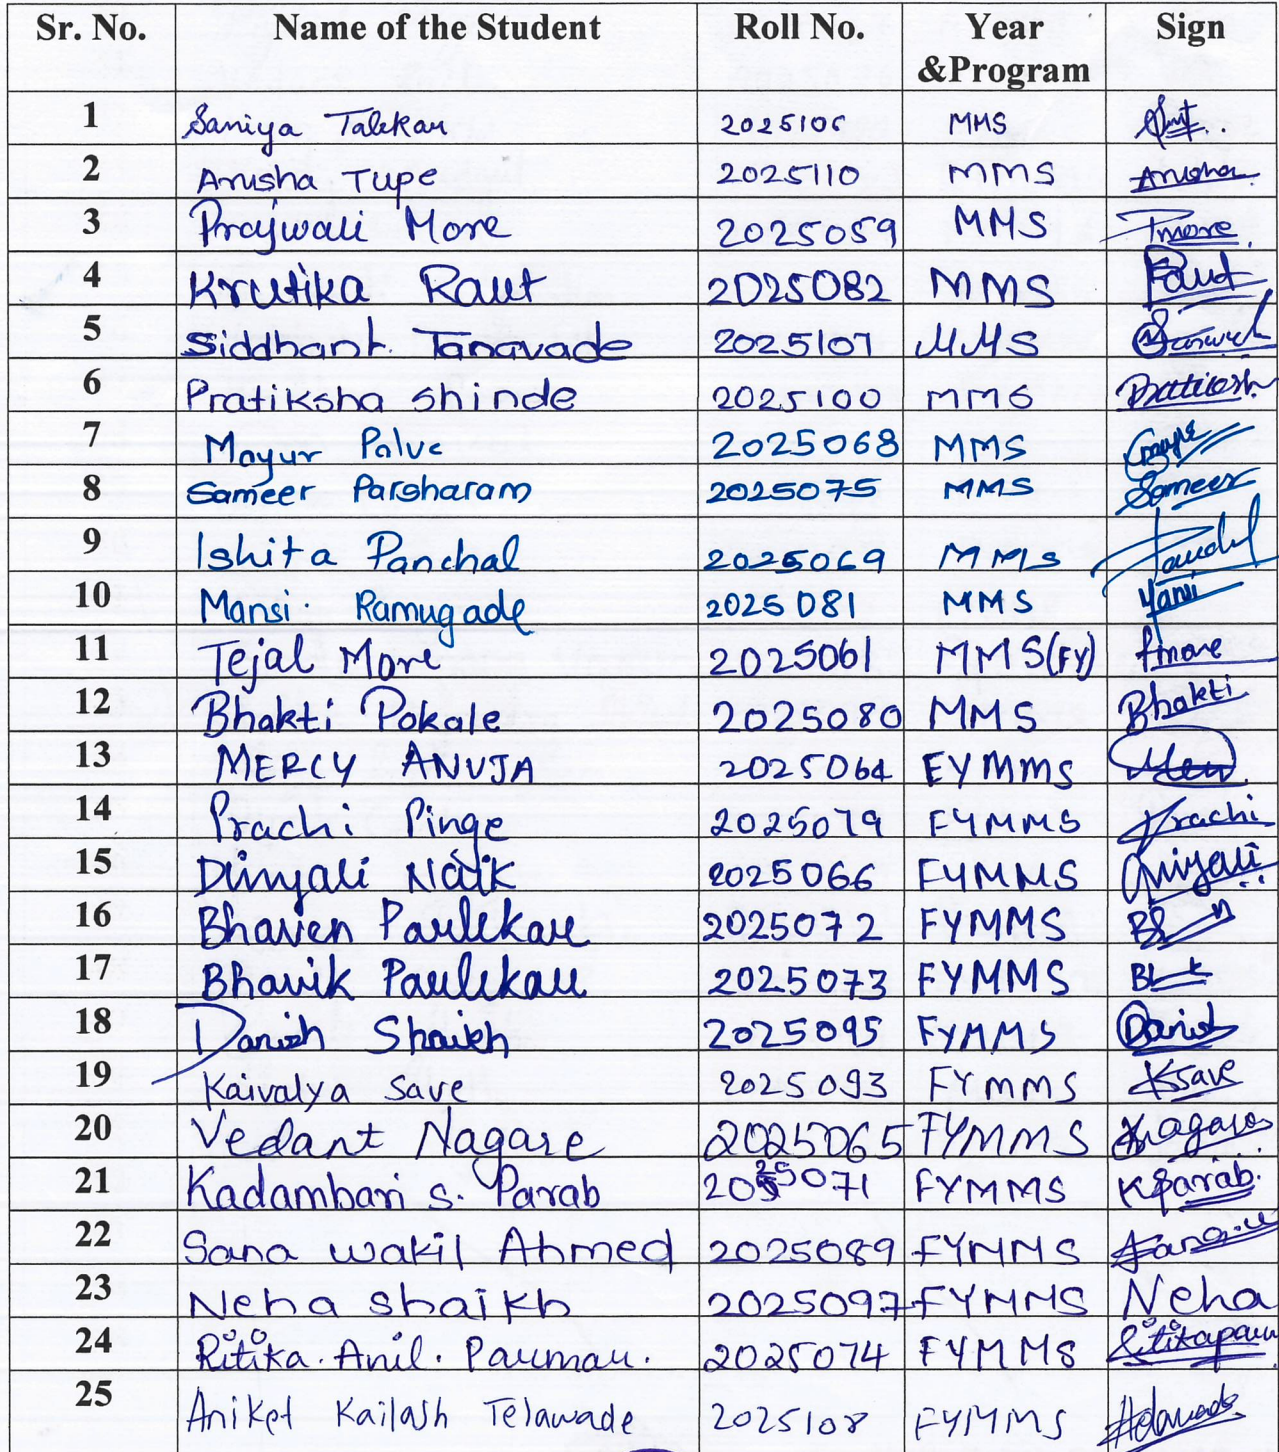 Sr. No. Name of the Student Roll No. Year &Program Sign
1 Saniya Talekar 2025106 MMS
2 Anusha Tupe 2025110 MMS Anusha
3 Prajwali More 2025059 MMS Pmore
4 Krutika Raut 2025082 MMS Raut
5 Siddhant Tanavade 2025107 MMS
6 Pratiksha Shinde 2025100 MMS Pratiksh
7 Mayur Palve 2025068 MMS
8 Sameer Parsharam 2025075 MMS Sameer
9 Ishita Panchal 2025069 MMS
10 Mansi Ramugade 2025081 MMS
11 Tejal More 2025061 MMS(FY) Tmore
12 Bhakti Pokale 2025080 MMS Bhakti
13 MERCY ANUJA 2025064 FYMMS
14 Prachi Pinge 2025079 FYMMS Prachi
15 Naik 2025066 FYMMS
16 Bhaven Paulekar 2025072 FYMMS
17 Bhavik Paulekar 2025073 FYMMS
18 Danish Shaikh 2025095 FYMMS Danish
19 Kaivalya Save 2025093 FYMMS Ksave
20 Vedant Nagare 2025065 FYMMS Nagare
21 Kadambari S. Parab 2025071 FYMMS KSParab.
22 Sana Wakil Ahmed 2025089 FYMMS
23 Neha Shaikh 2025097 FYMMS Neha
24 Ritika. Anil. Parmar. 2025074 FYMMS
25 Aniket Kailash Telawade 2025108 FYMMS